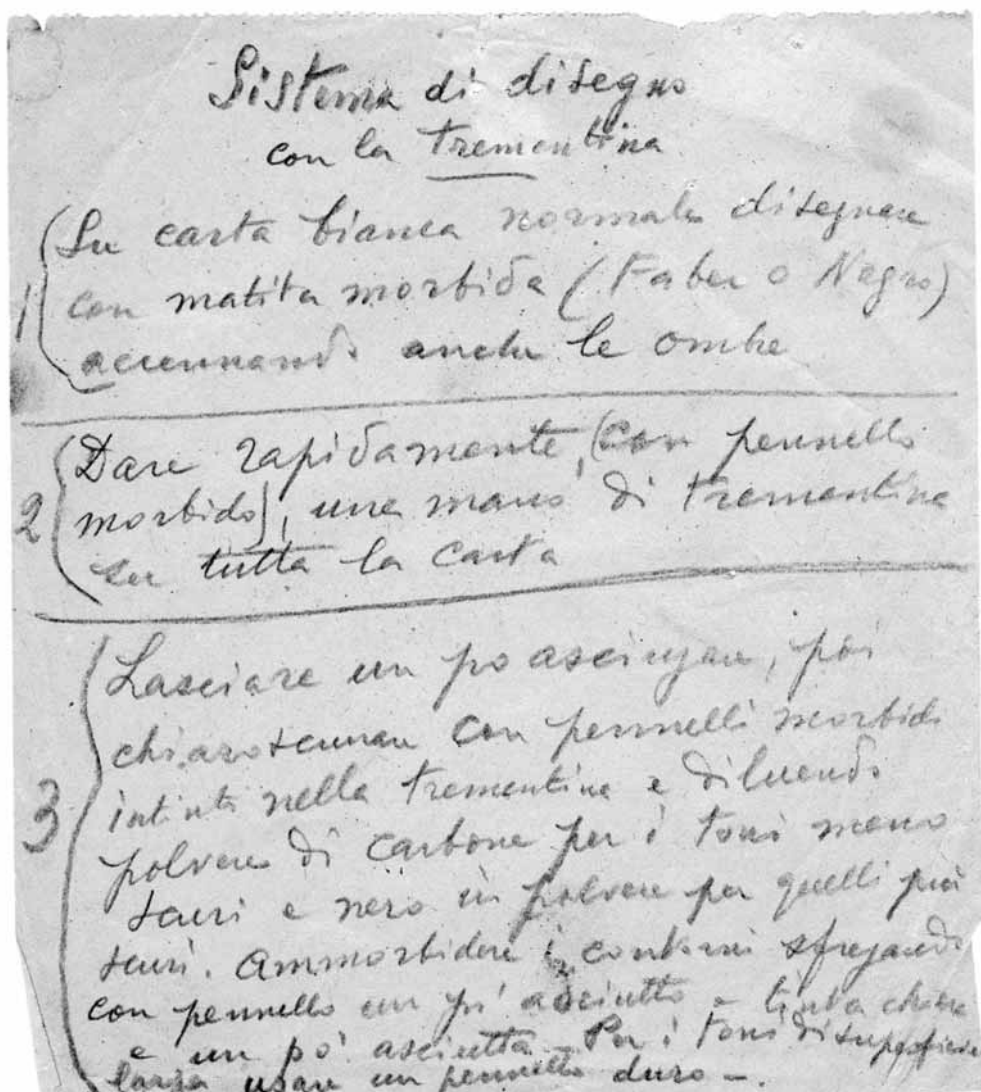 Sistema di disegno
con la trementina
Su carta bianca normale disegnare
1 con matita morbida (Faber o Negro)
accennando anche le ombre
Dare rapidamente, (con pennello
2 morbido), una mano di trementina
su tutta la carta
Lasciare un po asciugare, poi
chiaroscurare con pennelli morbidi
intinti nella trementina e diluendo
3 polvere di carbone per i toni meno
scuri e nero in polvere per quelli più
scuri. Ammorbidire i contorni sfregando
con pennello un po' asciutto - tinta chiara
e un po' asciutta - Per i toni di superficie
larga usare un pennello duro -